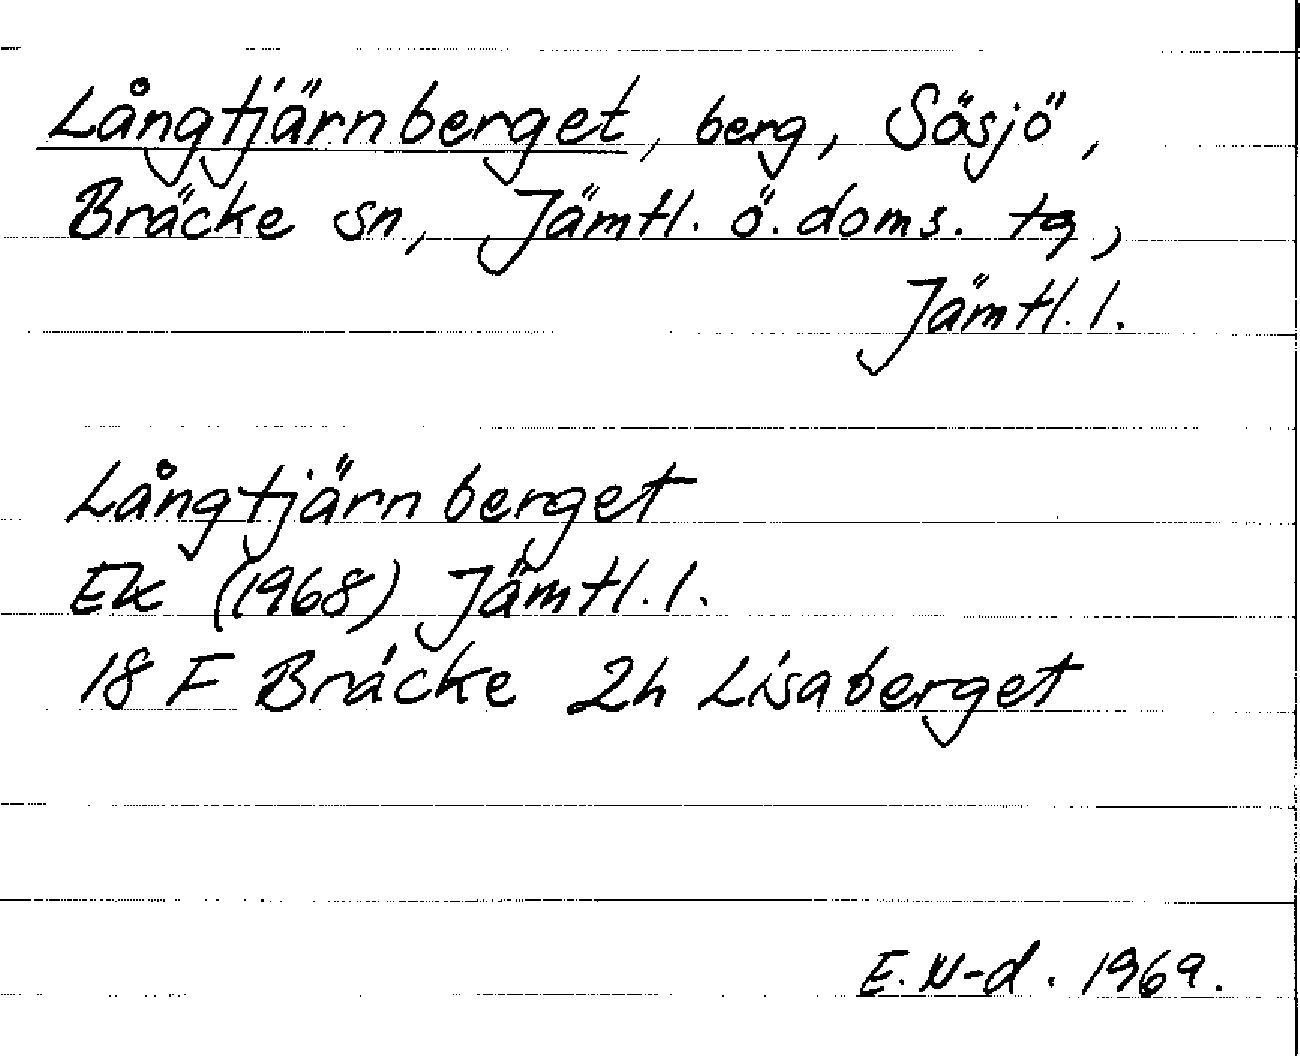 Långtjärnberget, berg, Sösjö,
Bräcke sn, Jämtl. ö. doms. tg,
Jämtl. l.
Långtjärnberget
Ek (1968) Jämtl. l.
18 F Bräcke 2h Lisaberget
E. N-d. 1969.